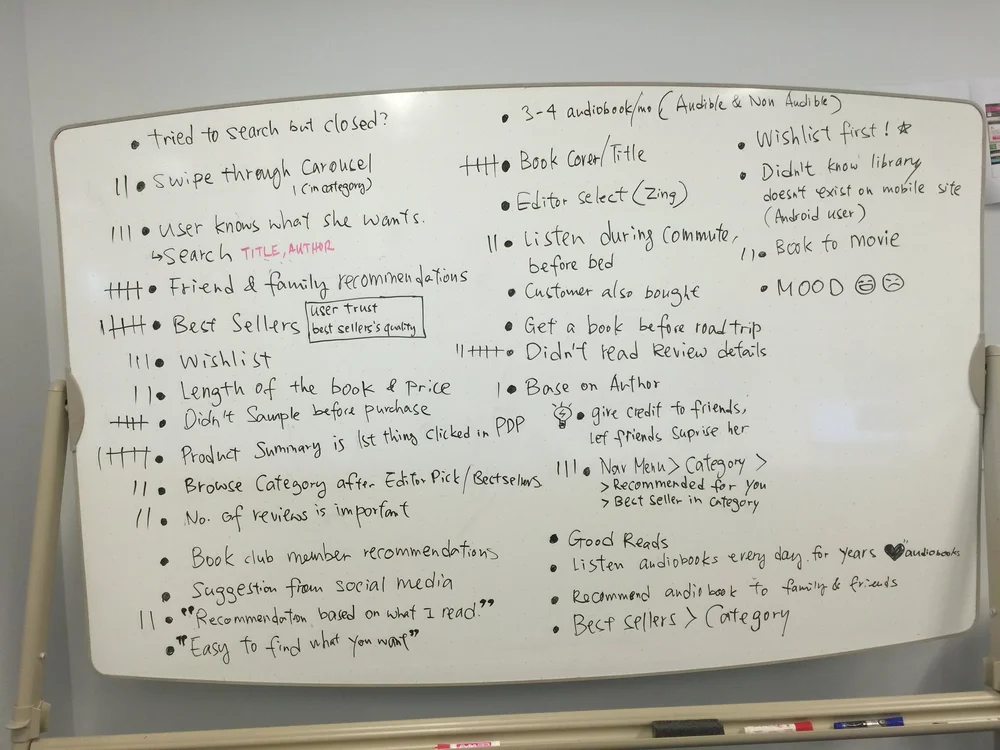 • tried to search but closed?
|| • Swipe through Carousel
(in category)
||| • User knows what she wants.
↳ Search TITLE, AUTHOR
卌 • Friend & family recommendations
|卌 • Best Sellers
user trust
best sellers's quality
||| • Wishlist
|| • Length of the book & Price
卌 • Didn't Sample before purchase
|卌 • Product Summary is 1st thing clicked in PDP
|| • Browse Category after Editor Pick/Bestsellers
|| • No. of reviews is important
• Book club member recommendations
• Suggestion from social media
|| • "Recommendation based on what I read."
• "Easy to find what you want"
• 3-4 audiobook/mo (Audible & Non Audible)
卌 • Book Cover/Title
• Editor select (Zing)
|| • Listen during commute,
before bed
• Customer also bought
• Get a book before road trip
||卌 • Didn't read Review details
| • Base on Author
• give credit to friends,
let friends suprise her
||| • Nav Menu > Category >
> Recommended for you
> Best seller in category
• Good Reads
• Listen audiobooks every day for years ♥ "audiobooks
• Recommend audiobook to family & friends
• Best sellers > Category
• Wishlist first! ☆
• Didn't know library
doesn't exist on mobile site
(Android user)
|| • Book to movie
• MOOD